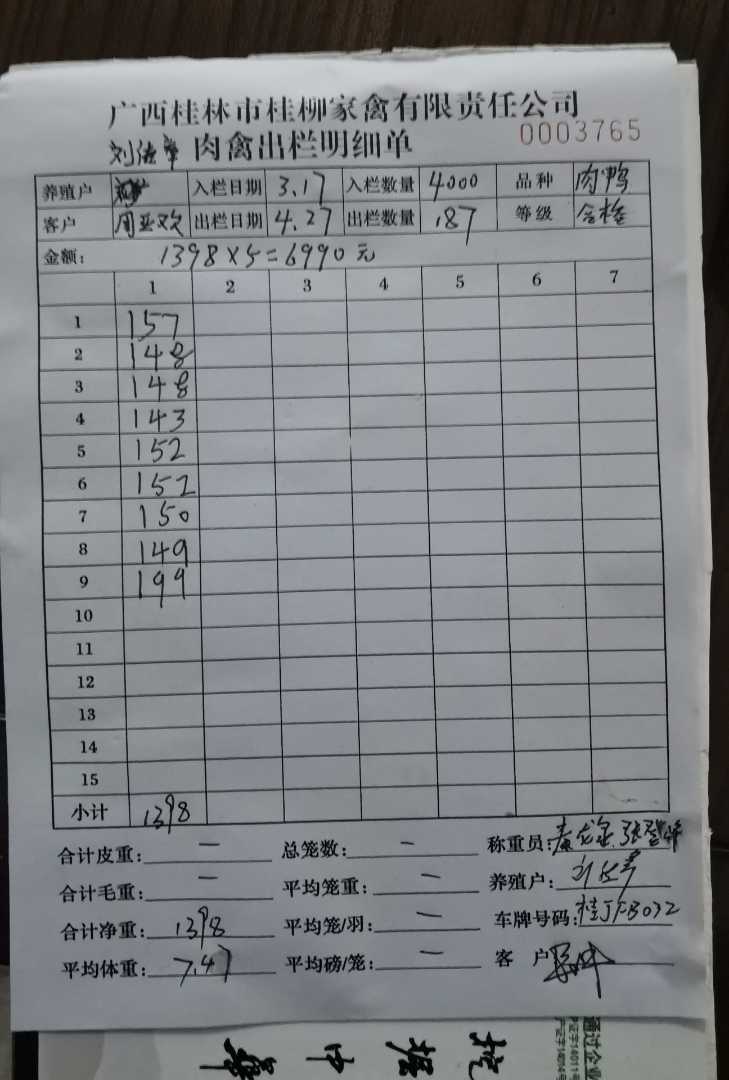 广西桂林市桂柳家禽有限责任公司
肉禽出栏明细单 0003765
养殖户 入栏日期 3.17 入栏数量 4000 品种 肉鸭
客户 周亚欢 出栏日期 4.27 出栏数量 187 等级 合格
金额: 1398×5=6990元
1 2 3 4 5 6 7
1 157
2 148
3 148
4 143
5 152
6 152
7 150
8 149
9 199
10
11
12
13
14
15
小计 1398
合计皮重: — 总笼数: — 称重员:
合计毛重: — 平均笼重: — 养殖户:
合计净重: 1398 平均笼/羽: — 车牌号码:
平均体重: 7.47 平均磅/笼: — 客 户